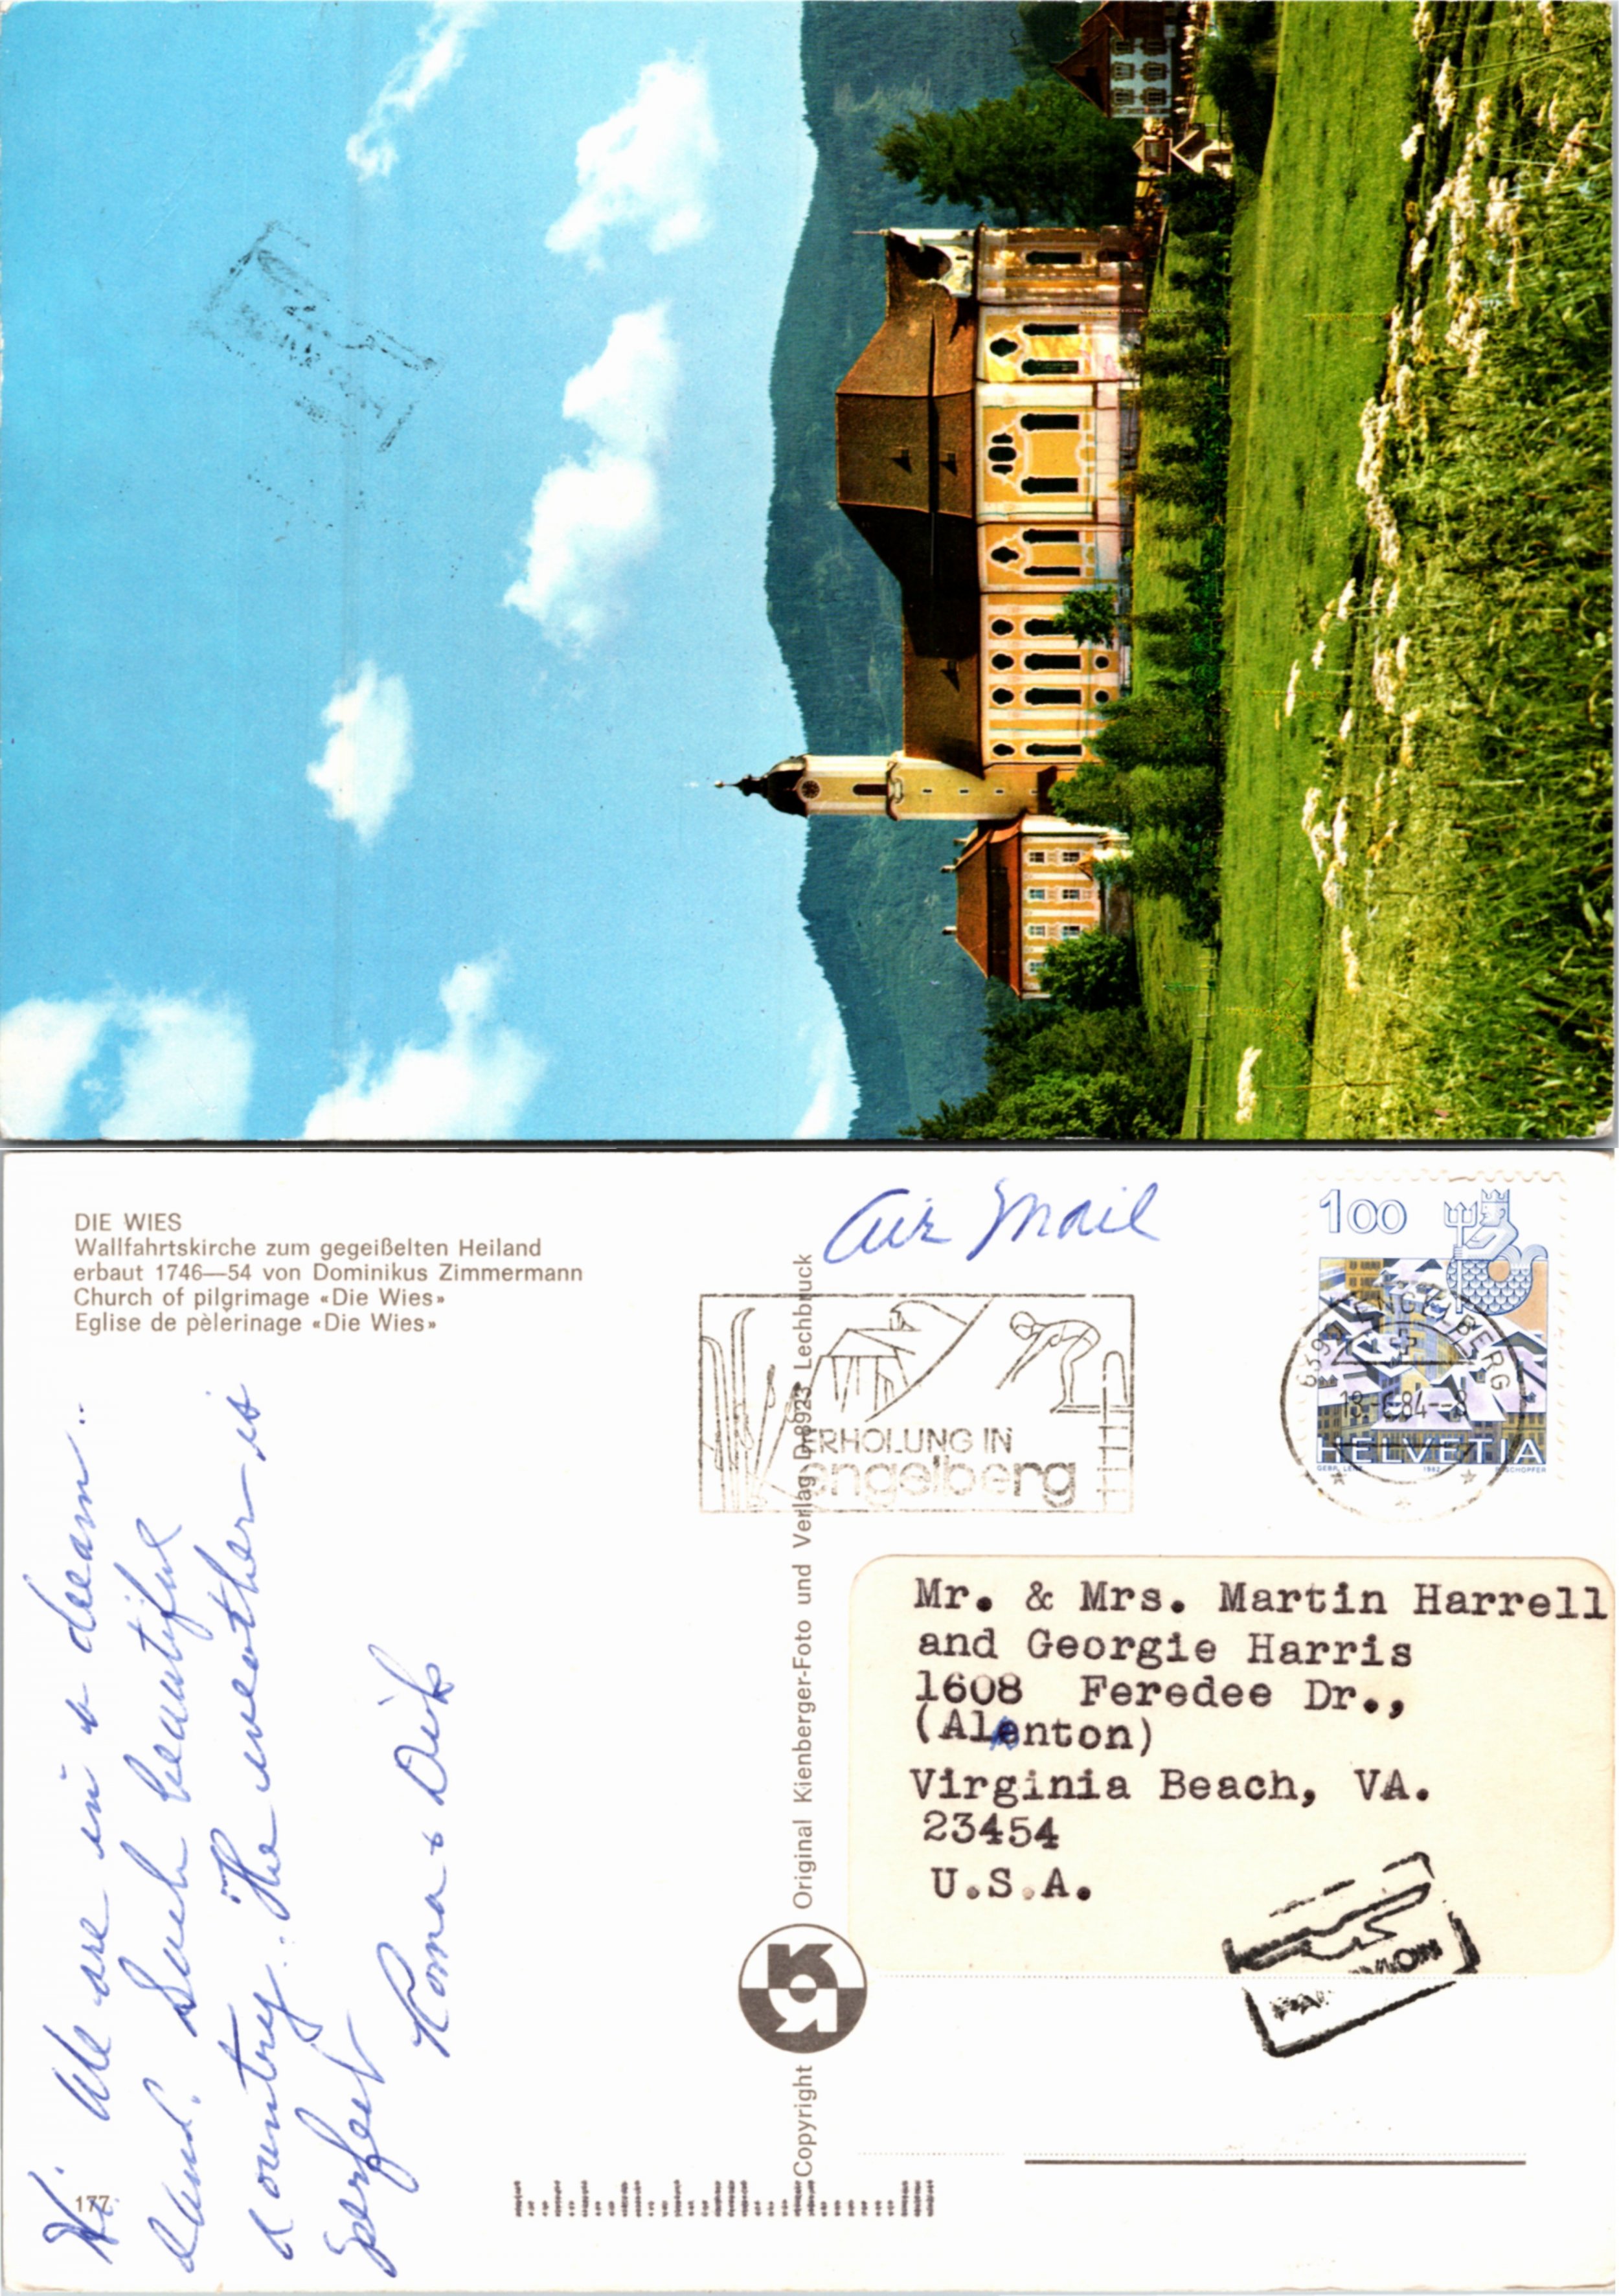 DIE WIES
Wallfahrtskirche zum gegeißelten Heiland
erbaut 1746—54 von Dominikus Zimmermann
Church of pilgrimage «Die Wies»
Eglise de pèlerinage «Die Wies»
Air Mail
100
HELVETIA
6390 ENGELBERG
ERHOLUNG IN
engelberg
Hi. We are in a dream..
land. Such beautiful
country. The weather is
perfect
Rona & Dick
177
Copyright
Original Kienberger-Foto und Verlag D-8923 Lechbruck
Mr. & Mrs. Martin Harrell
and Georgie Harris
1608 Feredee Dr.,
(Alanton)
Virginia Beach, VA.
23454
U.S.A.
PAR AVION